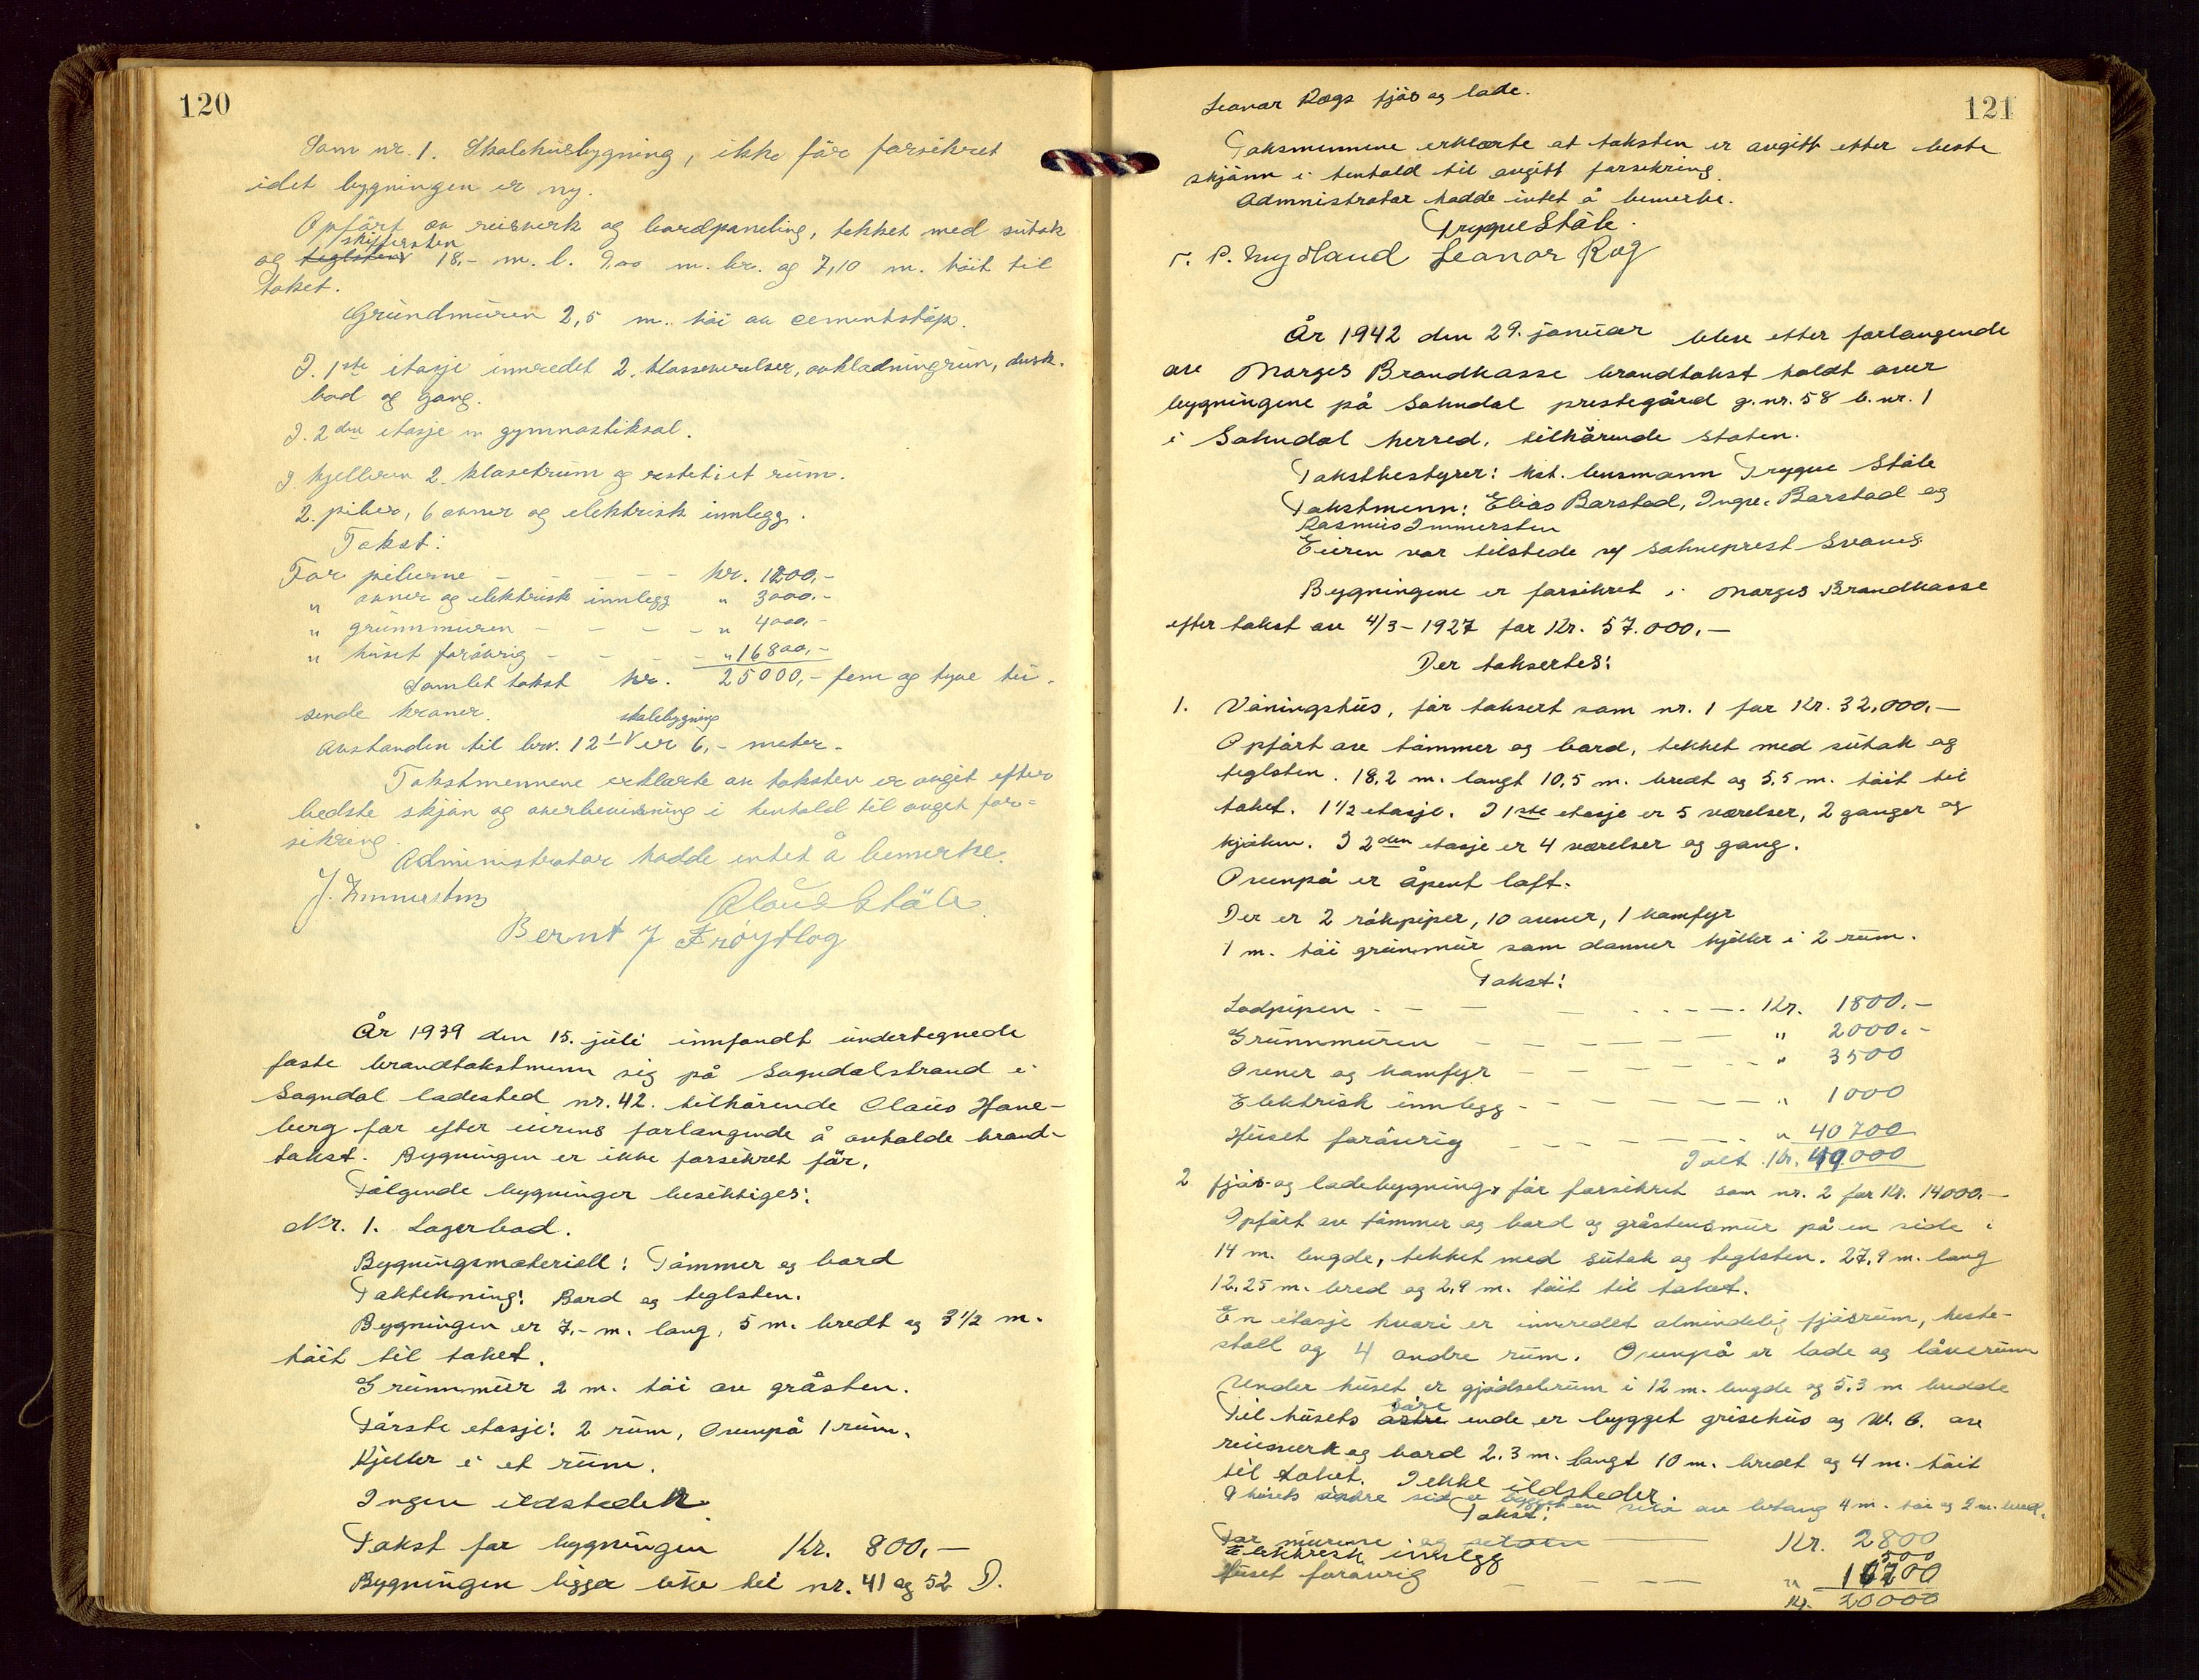 120
Som nr. 1. Skolehusbygning, ikke før forsikret
idet bygningen er ny.
Opført av reisverk og bordpaneling, tekket med sutak
skifersten
og teglsten 18,- m. l. 9,00 m. br. og 7,10 m. høit til
taket.
Grundmuren 2,5 m. høi av cementstøp.
I. 1ste etasje innredet 2. klasseverelser, avkledningrum, dusk-
bad og gang.
I. 2den etasje gymnastiksal.
I kjelleren 2. klosetrum og et rum.
2. piber, 6 ovner og elektrisk innlegg.
Takst:
For piberne – – – – kr. 1200,-
" ovner og elektrisk innlegg " 3000,-
" grunnmuren – – – – " 4000,-
" huset forøvrig – – – " 16800,-
Samlet takst kr. 25000,- fem og tyve tu-
sende kroner.
skolebygning
Avstanden til brv. 121 er 6,- meter.
Takstmennene erklærte av taksten er avgit efter
bedste skjøn og overbevisning i henhold til avget for-
sikring.
Administrator hadde intet å bemerke.
J. Immersten Claus Ståle
Bernt J Frøytlog
År 1939 den 15. juli innfandt undertegnede
faste brandtakstmenn sig på Sogndalstrand i
Sogndal ladested nr. 42. tilhørende Claus Hane-
berg for efter eierens forlangende å avholde brand-
takst. Bygningen er ikke forsikret før.
Følgende bygninger besiktiges:
Nr. 1. Lagerbod.
Bygningsmateriell: Tømmer og bord
Taktekning: Bord og teglsten.
Bygningen er 7,- m. lang, 5 m. bredt og 3 1/2 m.
høit til taket.
Grunnmur 2 m. høi av gråsten.
Første etasje: 2 rum, Ovenpå 1 rum.
Kjeller i et rum.
Ingen ildsteder.
Takst for bygningen Kr. 800,-
Bygningen ligger like til nr. 41 og 52 D.
121
Leonar Rogs fjøs og lade.
Taksmennene erklærte at taksten er avgitt etter beste
skjønn i henhold til avgitt forsikring.
Admnistrator hadde intet å bemerke.
Trygve Ståle.
P. Mydland Leonar Rog
År 1942 den 29. januar blev etter forlangende
av Norges Brandkasse brandtakst holdt over
bygningene på Sokndal prestegård g.nr. 58 b.nr. 1
i Sokndal herred, tilhørende staten.
Takstbestyrer: kst. lensmann Trygve Ståle
Takstmenn: Elias Barstad, Ingv. Barstad og
Rasmus Immersten
Eieren var tilstede v/ sokneprest Svanes
Bygningene er forsikret i Norges Brandkasse
efter takst av 4/3-1927 for Kr. 57.000.-
Der taksertes:
1. Våningshus, før taksert som nr. 1 for Kr. 32,000,-
Opført av tømmer og bord, tekket med sutak og
teglsten. 18,2 m. langt 10,5 m. bredt og 5,5 m. høit til
taket. 1 1/2 etasje. I 1ste etasje er 5 værelser, 2 ganger og
kjøken. I 2den etasje er 4 værelser og gang.
Ovenpå er åpent loft.
Der er 2 røkpiper, 10 ovner, 1 komfyr
1 m. høi grunnmur som danner kjeller i 2 rum.
Takst:
Lodpipen – – – – Kr. 1800.-
Grunnmuren – – – – " 2000.-
Ovner og komfyr – – – – " 3500
Elektrisk innlegg – – – – " 1000
Huset forøvrig – – – – " 40700
Ialt Kr. 49.000
2 fjøs- og ladebygning, før forsikret som nr. 2 for Kr. 14000.-
Opført av tømmer og bord og gråstensmur på en side i
14 m. lengde, tekket med sutak og teglsten. 27,9 m. lang
12,25 m. bred og 2,9 m. høit til taket.
En etasje hvori er innredet almindelig fjøsrum, heste-
stall og 4 andre rum. Ovenpå er lade og låverum
Under huset er gjødselrum i 12 m. lengde og 5,3 m bredde
Til husets ende er bygget grisehus og W. C. av
reisverk og bord 2,3 m. langt 10 m. bredt og 4 m. høit
til taket. Ikke ildsteder.
I husets side er bygget en av betong 4 m. høi og 2 m. bred.
Takst:
For murene og siloen Kr. 2800
Elektrisk innlegg 500
Huset forøvrig – – – " 16700
Kr. 20000